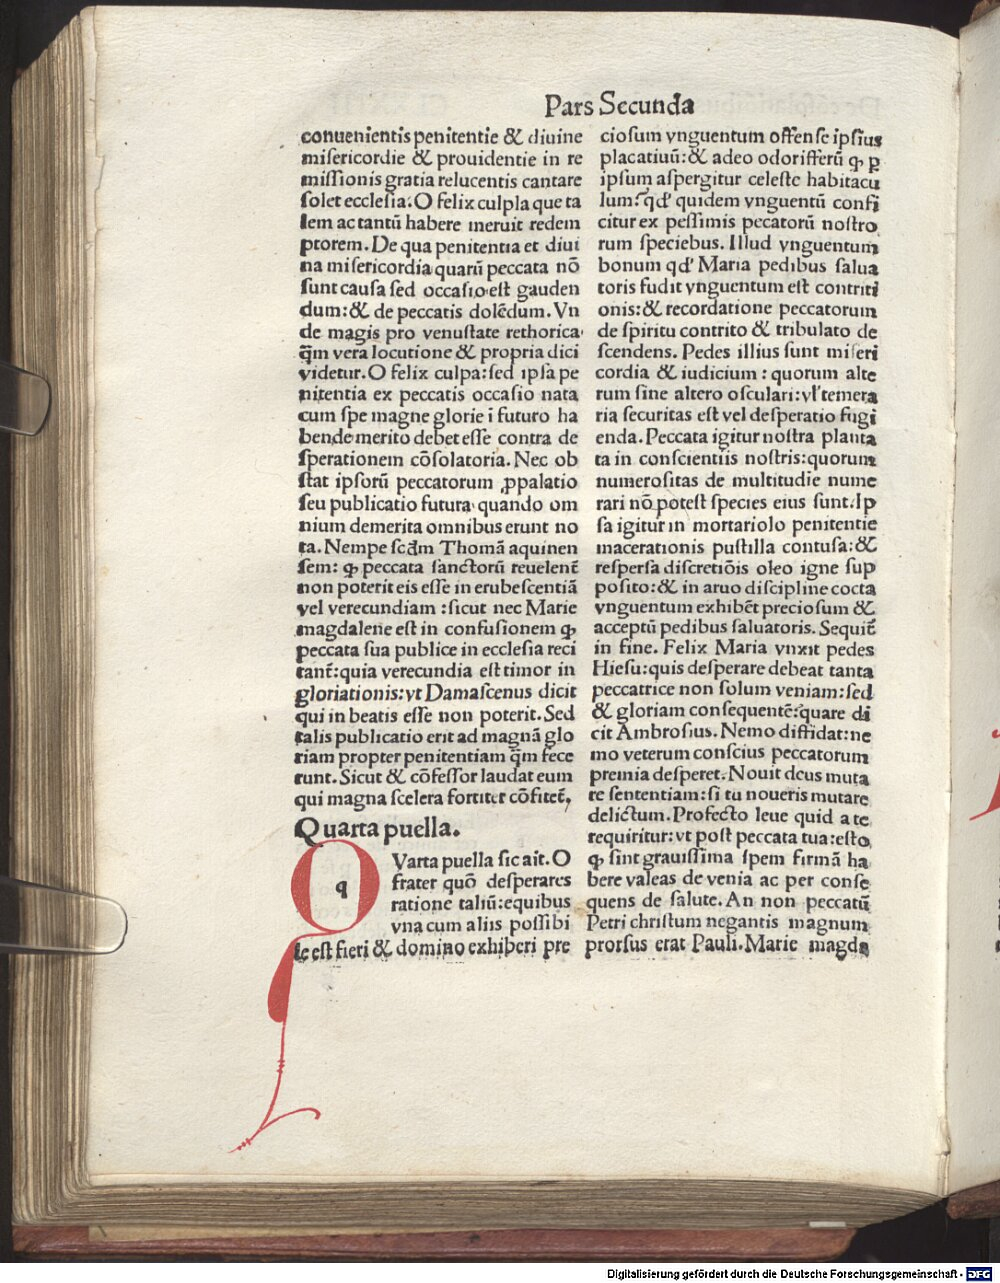 Pars Secunda
conuenientis penitentie & diuine
misericordie & prouidentie in re
missionis gratia relucentis cantare
solet ecclesia. O felix culpla que ta
lem ac tantū habere meruit redem
ptorem. De qua penitentia et diui
na misericordia quarū peccata nō
sunt causa sed occasio est gauden
dum: & de peccatis dolēdum. Vn
de magis pro venustate rethorica
q̄m vera locutione & propria dici
videtur. O felix culpa: sed ipsa pe
nitentia ex peccatis occasio nata
cum spe magne glorie ī futuro ha
bende merito debet esse contra de
sperationem cōsolatoria. Nec ob
stat ipsorū peccatorum ꝓpalatio
seu publicatio futura quando om
nium demerita omnibus erunt no
ta. Nempe scdm Thomā aquinen
sem: ꝙ peccata sanctorū reuelent̄
non poterit eis esse in erubescentiā
vel verecundiam: sicut nec Marie
magdalene est in confusionem ꝙ
peccata sua publice in ecclesia reci
tant̄: quia verecundia est timor in
gloriationis: vt Damascenus dicit
qui in beatis esse non poterit. Sed
talis publicatio erit ad magnā glo
riam propter penitentiam q̄m fece
runt. Sicut & cōfessor laudat eum
qui magna scelera fortiter cōfitet̄,
Quarta puella.
q
Varta puella sic ait. O
frater quō desperares
ratione taliū: equibus
vna cum aliis possibi
le est fieri & domino exhiberi pre
ciosum vnguentum offense ipsius
placatiuū: & adeo odorifferū ꝙ ꝑ
ipsum aspergitur celeste habitacu
lum? qd' quidem vnguentū confi
citur ex pessimis pecatorū nostro
rum speciebus. Illud vnguentum
bonum qd' Maria pedibus salua
toris fudit vnguentum est contriti
onis: & recordatione peccatorum
de spiritu contrito & tribulato de
scendens. Pedes illius sunt miseri
cordia & iudicium: quorum alte
rum sine altero osculari: vl' temera
ria securitas est vel desperatio fugi
enda. Peccata igitur nostra planta
ta in conscientiis nostris: quorum
numerositas de multitudie nume
rari nō potest species eius sunt. Ip
sa igitur in mortariolo penitentie
macerationis pustilla contusa: &
respersa discretiōis oleo igne sup
posito: & in aruo discipline cocta
vnguentum exhibēt preciosum &
acceptū pedibus saluatoris. Sequit̄
in fine. Felix Maria vnxit pedes
Hiesu: quis desperare debeat tanta
peccatrice non solum veniam: sed
& gloriam consequente? quare di
cit Ambrosius. Nemo diffidat: ne
mo veterum conscius peccatorum
premia desperet. Nouit deus muta
re sententiam: si tu noueris mutare
delictum. Profecto leue quid a te
requiritur: vt post peccata tua: esto
ꝙ sint grauissima spem firmā ha
bere valeas de venia ac per conse
quens de salute. An non peccatū
Petri christum negantis magnum
prorsus erat Pauli. Marie magda
Digitalisierung gefördert durch die Deutsche Forschungsgemeinschaft - DFG